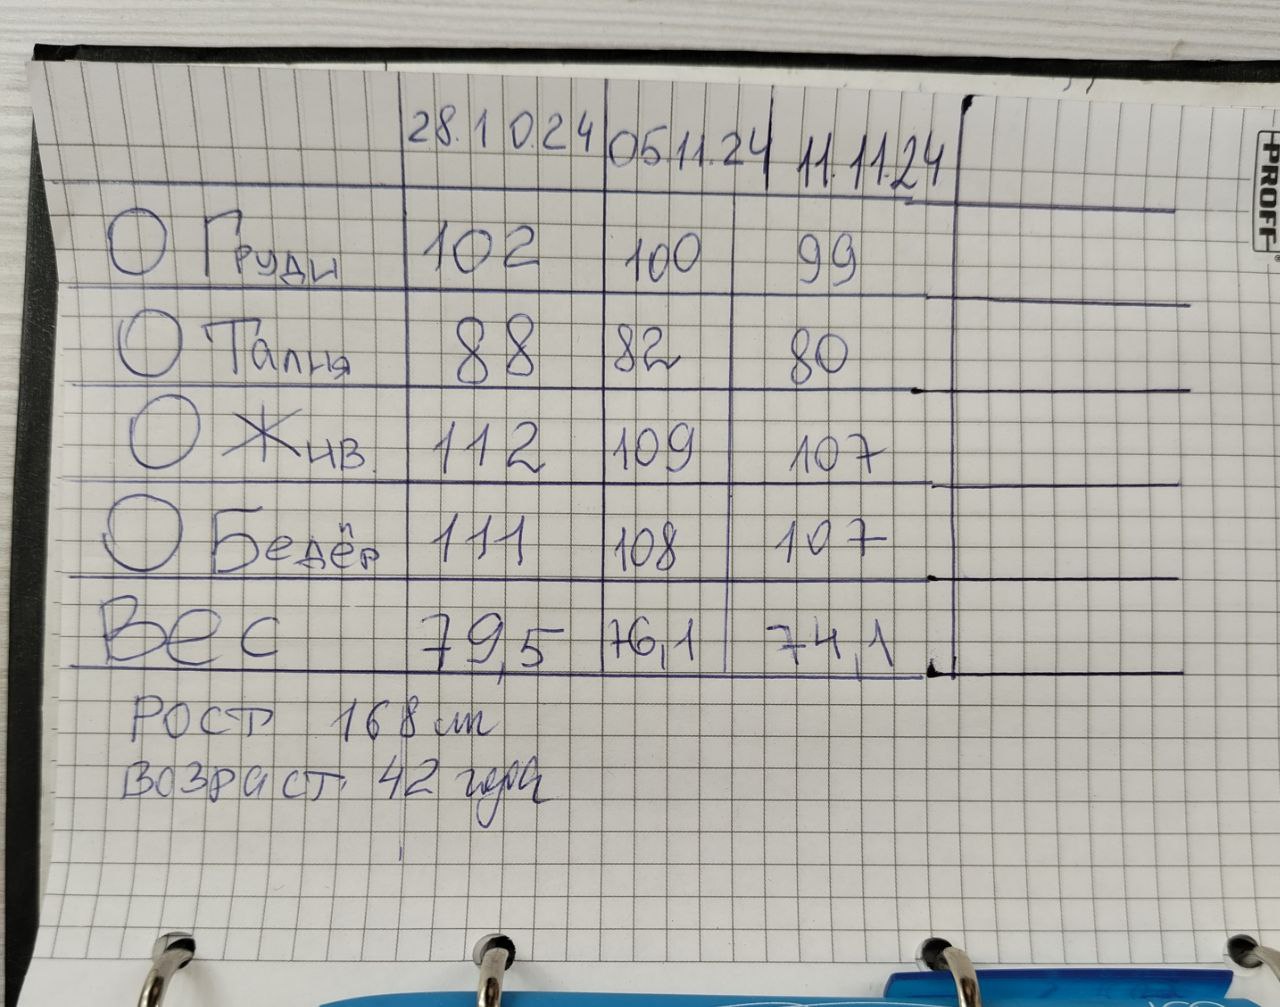 28.10.24 05.11.24 11.11.24
Груди 102 100 99
Талия 88 82 80
Жив. 112 109 107
Бедёр 111 108 107
Вес 79,5 76,1 74,1
Рост 168 см
Возраст 42 года
PROFF